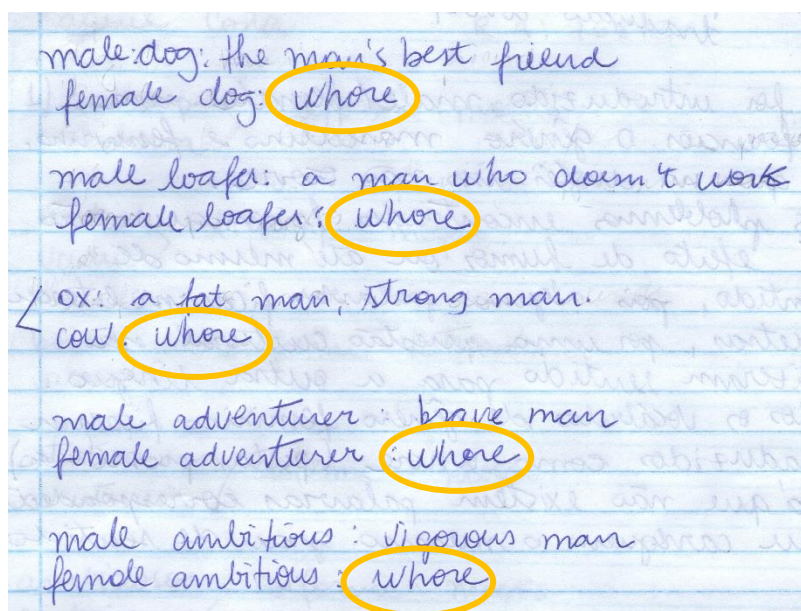 male:dog: the man's best friend
female dog: whore
male loafer: a man who doesn't work
female loafer: whore.
ox: a fat man, strong man.
cow: whore
male adventurer: brave man
female adventurer: whore
male ambitious: vigorous man
female ambitious: whore